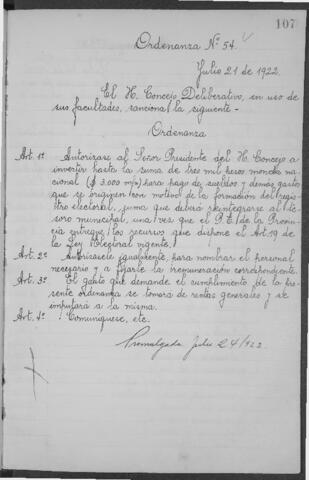 107
Ordenanza Nº 54.
Julio 21 de 1922.
El H. Concejo Deliberativo, en uso de
sus facultades, sanciona la siguiente -
Ordenanza
Art. 1º Autorízase al Señor Presidente del H. Concejo a
invertir hasta la suma de tres mil pesos moneda na-
cional ($ 3.000 m/n) para pago de sueldos y demás gastos
que se originen con motivo de la formación del regis-
tro electoral, suma que deberá reintegrarse al te-
soro municipal, una vez que el P.E. de la Provin-
cia entregue los recursos que dispone el Art. 19 de
la Ley Electoral vigente.
Art. 2º Autorízasele igualmente, para nombrar el personal
necesario y a fijarle la remuneración correspondiente.
Art. 3º El gasto que demande el cumplimiento de la pre-
sente ordenanza se tomará de rentas generales y se
imputará a la misma.
Art. 4º Comuníquese, etc.
Promulgada Julio 24/922